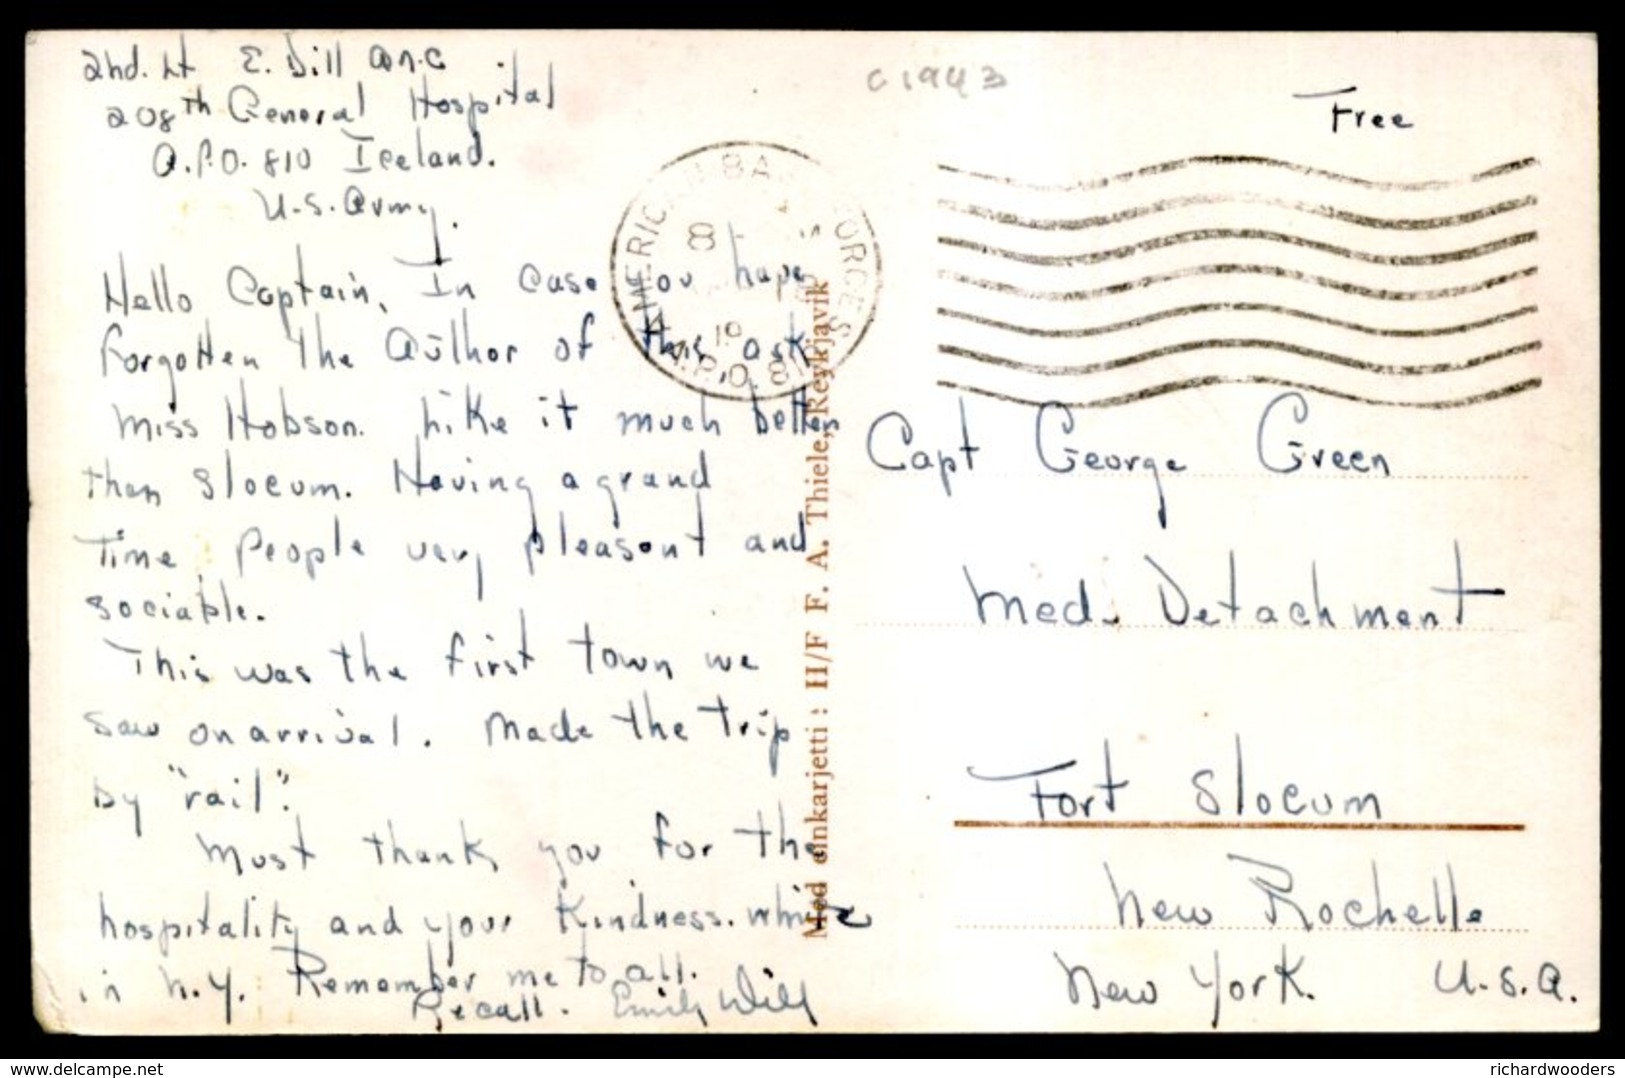 2nd. Lt E. Dill A.N.C.
208th General Hospital
A.P.O. 810 Iceland.
U.S. Army.
Hello Captain, In case you have
forgotten the Author of this, ask
Miss Hobson. Like it much better
then Slocum. Having a grand
Time, People very pleasant and
sociable.
This was the first town we
saw on arrival. Made the trip
by "rail".
Must thank you for the
hospitality and your kindness. while
in N.Y. Remember me to all.
Recall. Emily Dill
c 1943
Free
AMERICAN BASE FORCES
8
19
A.P.O. 810
Med einkarjetti: H/F F. A. Thiele, Reykjavik
Capt George Green
Med. Detachment
Fort Slocum
New Rochelle
New York. U.S.A.
www.delcampe.net
richardwooders